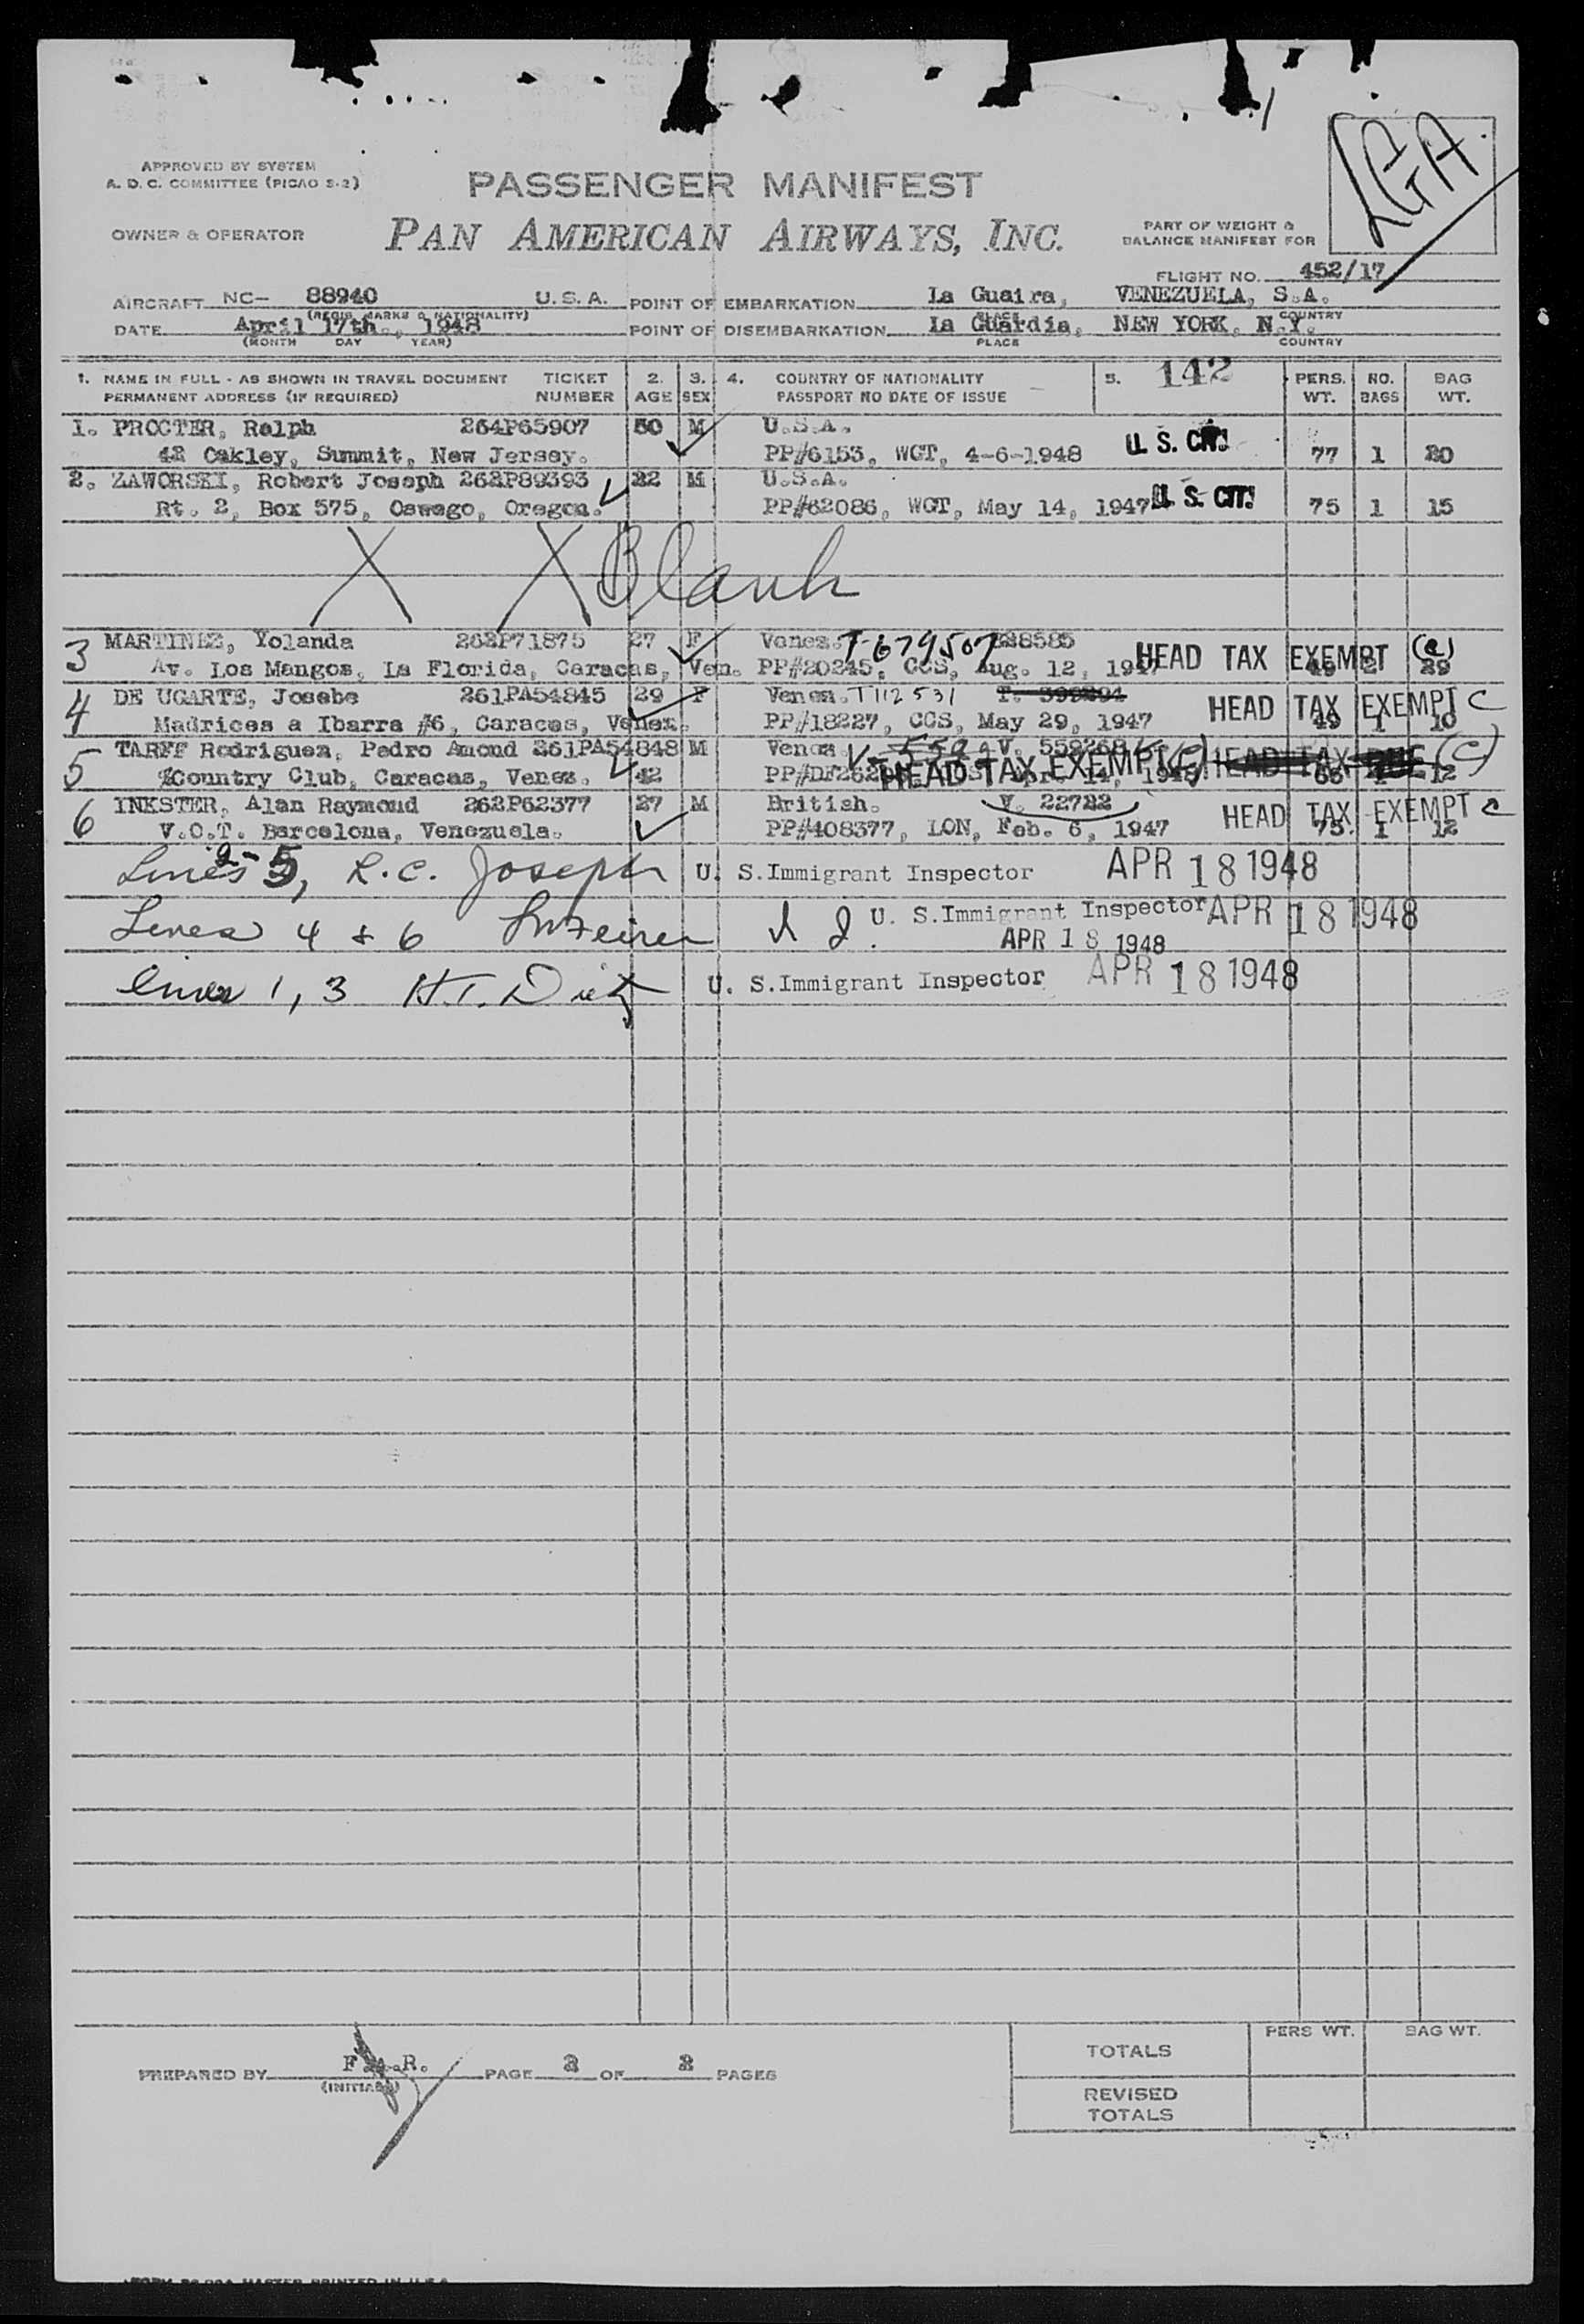 LGA.
APPROVED BY SYSTEM
A. D. C. COMMITTEE (PICAO S-2)
PASSENGER MANIFEST
OWNER & OPERATOR
PAN AMERICAN AIRWAYS, INC.
PART OF WEIGHT &
BALANCE MANIFEST FOR
FLIGHT NO. 452/17
AIRCRAFT NC- 88940 U. S. A. POINT OF EMBARKATION La Guaira, VENEZUELA, S.A.
(REGIS. MARKS & NATIONALITY) PLACE COUNTRY
DATE April 17th., 1948 POINT OF DISEMBARKATION La Guardia, NEW YORK, N.Y.
(MONTH DAY YEAR) PLACE COUNTRY
1. NAME IN FULL - AS SHOWN IN TRAVEL DOCUMENT TICKET 2. 3. 4. COUNTRY OF NATIONALITY 5. 142 PERS. NO. BAG
PERMANENT ADDRESS (IF REQUIRED) NUMBER AGE SEX PASSPORT NO DATE OF ISSUE WT. BAGS WT.
1. PROCTER, Ralph 264P65907 50 M U.S.A.
42 Oakley, Summit, New Jersey. PP#6153, WGT, 4-6-1948 U. S. CIT. 77 1 20
2. ZAWORSKI, Robert Joseph 262P89393 22 M U.S.A.
Rt. 2, Box 575, Oswego, Oregon. PP#62086, WGT, May 14, 1947 U. S. CIT. 75 1 15
X X Blank
3 MARTINEZ, Yolanda 262P71875 27 F Venez. T-679507 228585
Av. Los Mangos, La Florida, Caracas, Ven. PP#20245, CCS, Aug. 12, 1947 HEAD TAX EXEMPT (c) 49 2 29
4 DE UGARTE, Josebe 261PA54845 29 F Venez. T112531 T. 399294
Madrices a Ibarra #6, Caracas, Venez. PP#18227, CCS, May 29, 1947 HEAD TAX EXEMPT C 49 1 10
5 TARFF Rodriguez, Pedro Amond 261PA54848 M Venez. V. 559268
%Country Club, Caracas, Venez. 42 HEAD TAX EXEMPT (C) HEAD TAX (C) 12
6 INKSTER, Alan Raymond 262P62377 27 M British. V. 22722
V.O.T. Barcelona, Venezuela. PP#408377, LON, Feb. 6, 1947 HEAD TAX EXEMPT c 75. 1 12
Lines 2-5, R.C. Joseph U. S. Immigrant Inspector APR 18 1948
Lines 4 & 6 U. S. Immigrant Inspector APR 18 1948
APR 18 1948
Lines 1, 3 H.T. Dietz U. S. Immigrant Inspector APR 18 1948
PERS WT. BAG WT.
TOTALS
PREPARED BY PAGE 2 OF 2 PAGES
(INITIALS)
REVISED
TOTALS